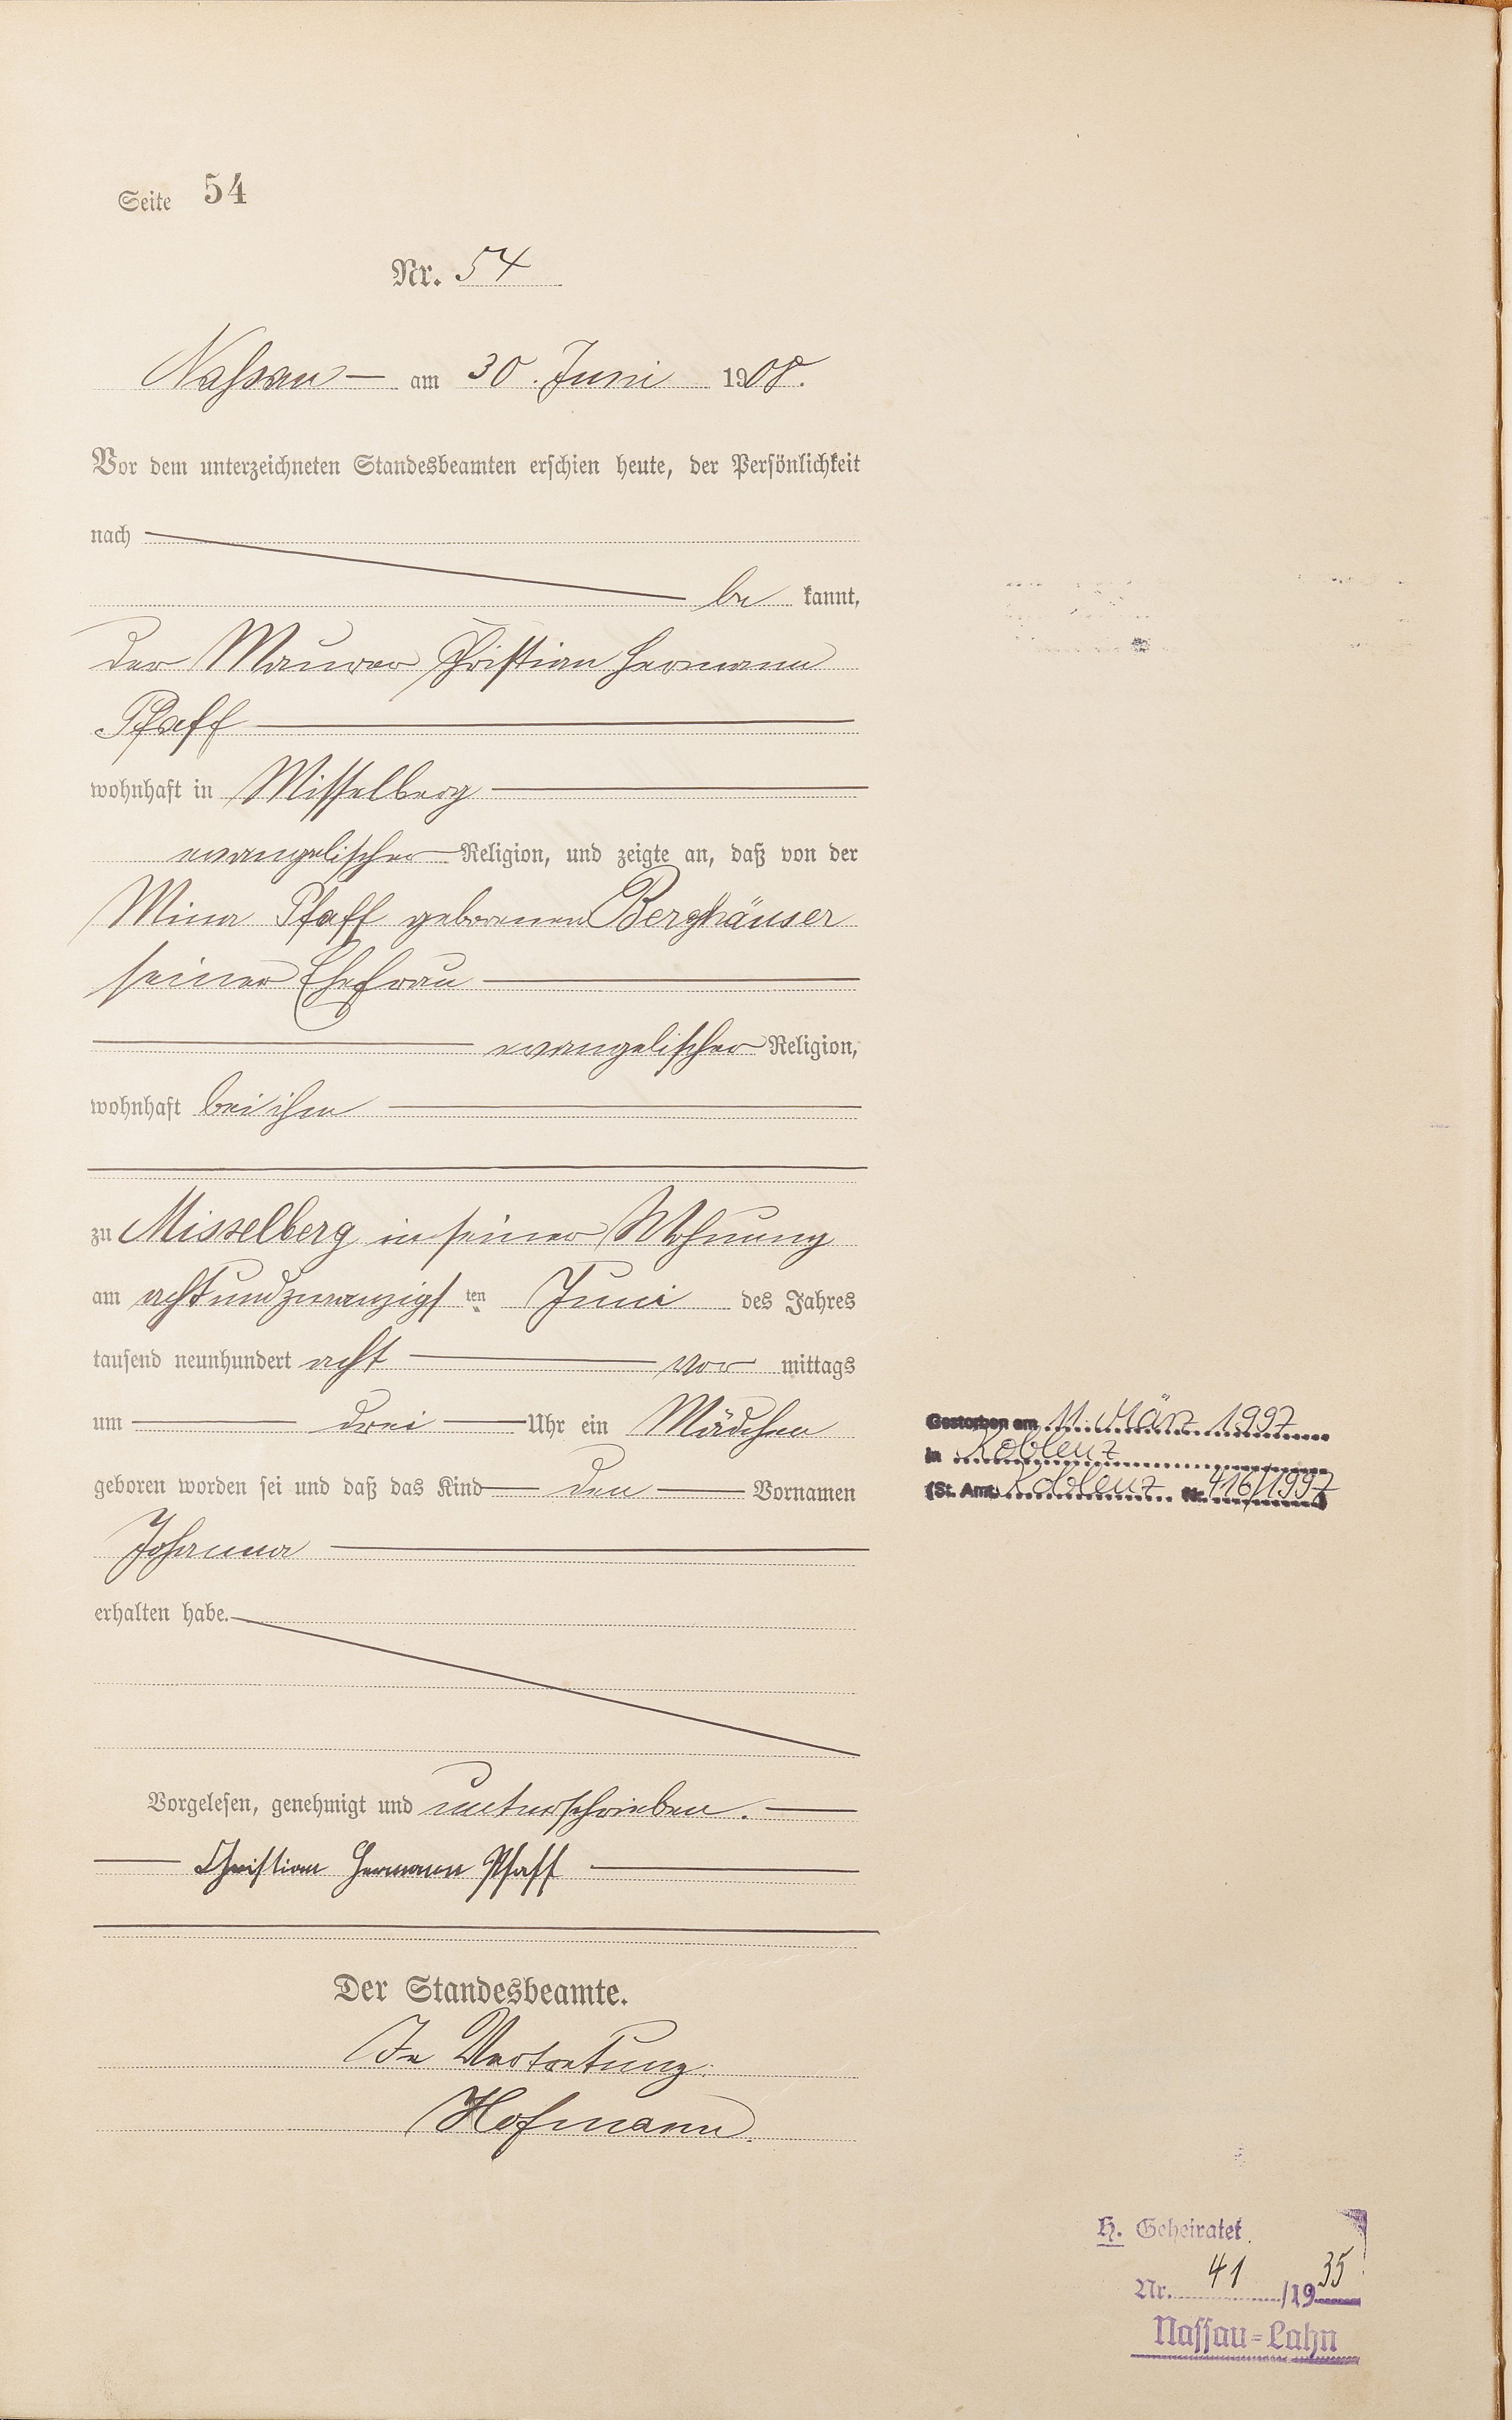 Seite 54
Nr. 54
Nassau — am 30. Juni 1908.
Vor dem unterzeichneten Standesbeamten erschien heute, der Persönlichkeit
nach
be kannt,
der Maurer Christian Hermann
Pfaff
wohnhaft in Misselberg
evangelischer Religion, und zeigte an, daß von der
Mina Pfaff geborenen Berghäuser
seiner Ehefrau
evangelischer Religion,
wohnhaft bei ihm
zu Misselberg in seiner Wohnung
am achtundzwanzigsten Juni des Jahres
tausend neunhundert acht vor mittags
um drei Uhr ein Mädchen
geboren worden sei und daß das Kind den Vornamen
Johanna
erhalten habe.
Vorgelesen, genehmigt und unterschrieben.
Christian Hermann Pfaff
Der Standesbeamte.
In Vertretung.
Hofmann.
Gestorben am 11. März 1997
in Koblenz
(St. Amt Koblenz Nr. 416/1997)
H. Geheiratet.
Nr. 41 /1935
Nassau-Lahn